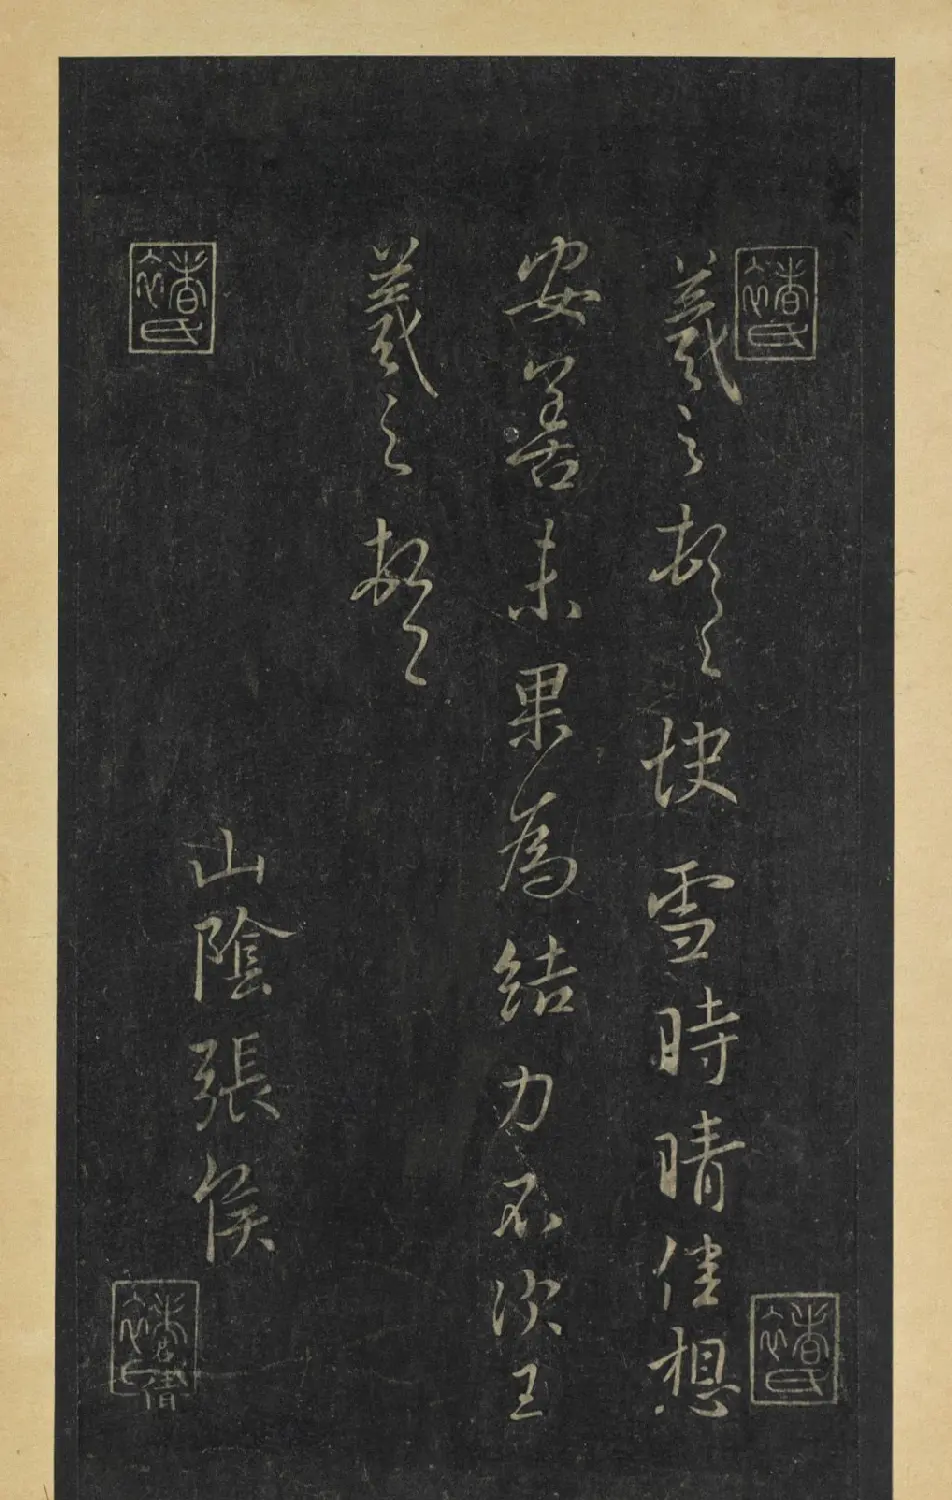 褚氏
羲之頓首快雪時晴佳想
褚氏
安善未果為結力不次王
羲之頓首
山陰張侯
褚氏